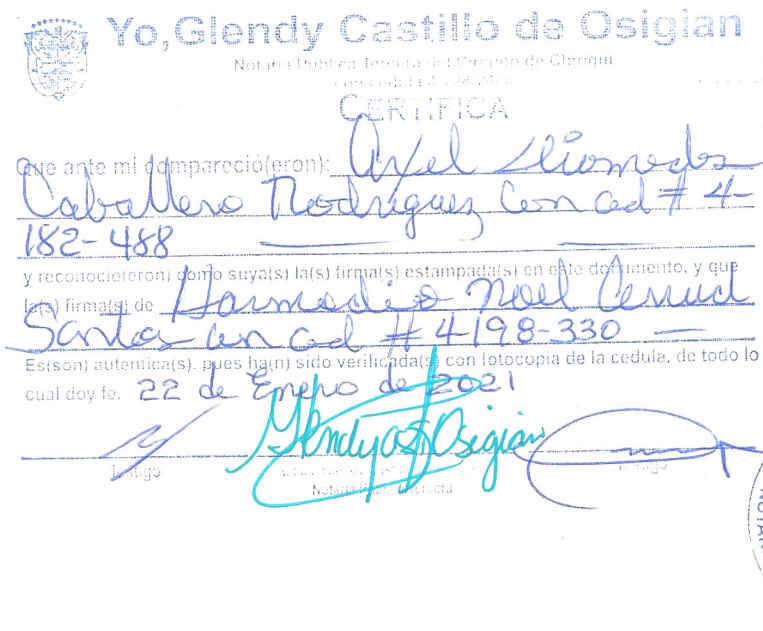 Yo, Glendy Castillo de Osigian
Notaria Pública Tercera del Circuito de Chiriquí
CERTIFICA
Que ante mi compareció(eron): Axel Diomedes
Caballero Rodriguez con ced # 4-
182-488
y reconoció(eron) como suya(s) la(s) firma(s) estampada(s) en este documento, y que
la(s) firma(s) de Harmodio Noel Cerrud
Santos con ced # 4-198-330
Es(son) autentica(s). pues ha(n) sido verificada(s) con fotocopia de la cedula, de todo lo
cual doy fe. 22 de Enero de 2021
Glendy C de Osigian
Testigo Testigo
Notaria Pública Tercera
NOTAR